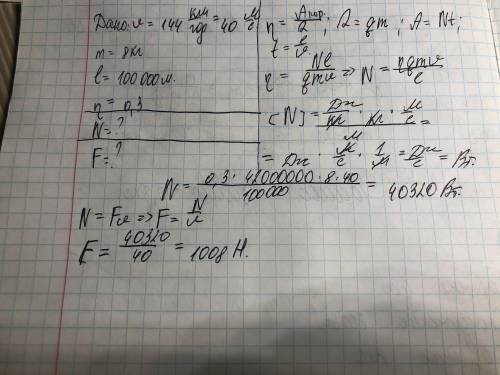 Дано: v = 144 км/год = 40 м/с
m = 8 кг
l = 100 000 м.
η = 0,3
N = ?
F = ?
η = Aкор./Q ; Q = qm ; A = Nt ;
t = l/v
η = Nl/qmv => N = ηqmv/l
[N] = Дж/кг · кг · м/с / м =
= Дж · м/с · 1/м = Дж/с = Вт.
N = 0,3 · 42000000 · 8 · 40 / 100000 = 40320 Вт.
N = Fv => F = N/v
F = 40320/40 = 1008 Н.